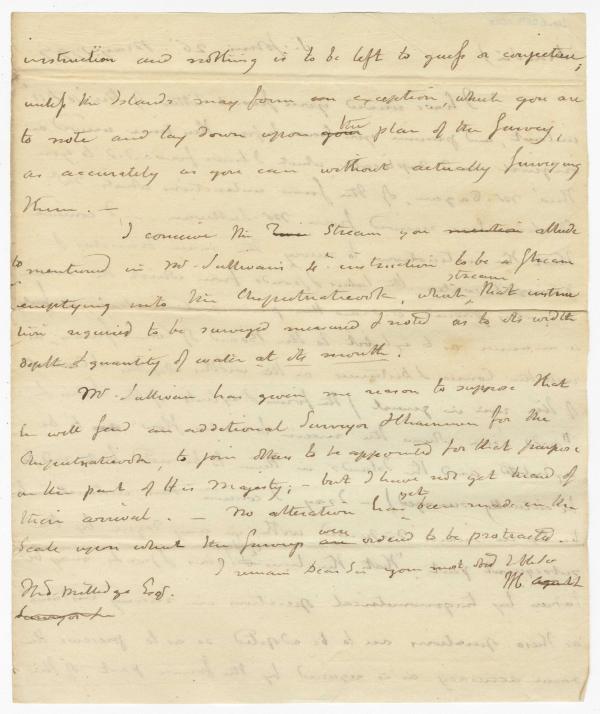 instruction and nothing is to be left to guess or conjecture,
unless the Islands may form an exception which you are
to note and lay down upon your the plan of the Survey,
as accurately as you can without actually Surveying
them. —
I conceive the Stream you mention allude
to mentioned in Mr. Sullivan's 4th. instruction to be a Stream
emptying into the Cheputnatecook, which stream that instruc
tion required to be surveyed measured & noted as to its width
depth & quantity of water at its mouth.
Mr. Sullivan has given me reason to suppose that
he will send an additional Surveyor & Chainmen for the
Cheputnatecook, to join others to be appointed for that purpose
on the part of His Majesty; — but I have not yet heard of
their arrival. — No alteration has yet been made in the
Scale upon which the Surveys are were ordered to be protracted.
I remain Dear Sir your most obd hble Sr
agent
Thos. Milledge Esqr.
Surveyor